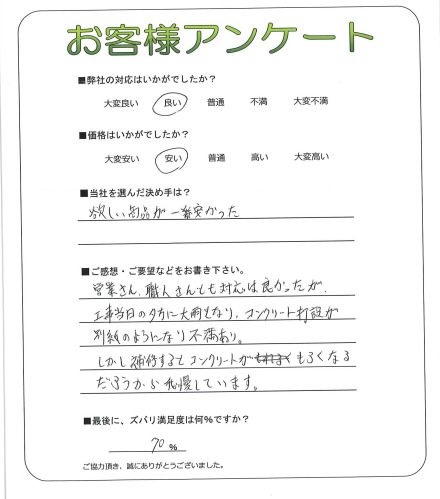 お客様アンケート
■弊社の対応はいかがでしたか?
大変良い 良い 普通 不満 大変不満
■価格はいかがでしたか?
大変安い 安い 普通 高い 大変高い
■当社を選んだ決め手は?
欲しい商品が一番安かった
■ご感想・ご要望などをお書き下さい。
営業さん、職人さんとも対応は良かったが、
工事当日の夕方に大雨となり、コンクリート打設が
別紙のようになり不満あり。
しかし補修するとコンクリートが もろくなる
だろうから我慢しています。
■最後に、ズバリ満足度は何%ですか?
70 %
ご協力頂き、誠にありがとうございました。